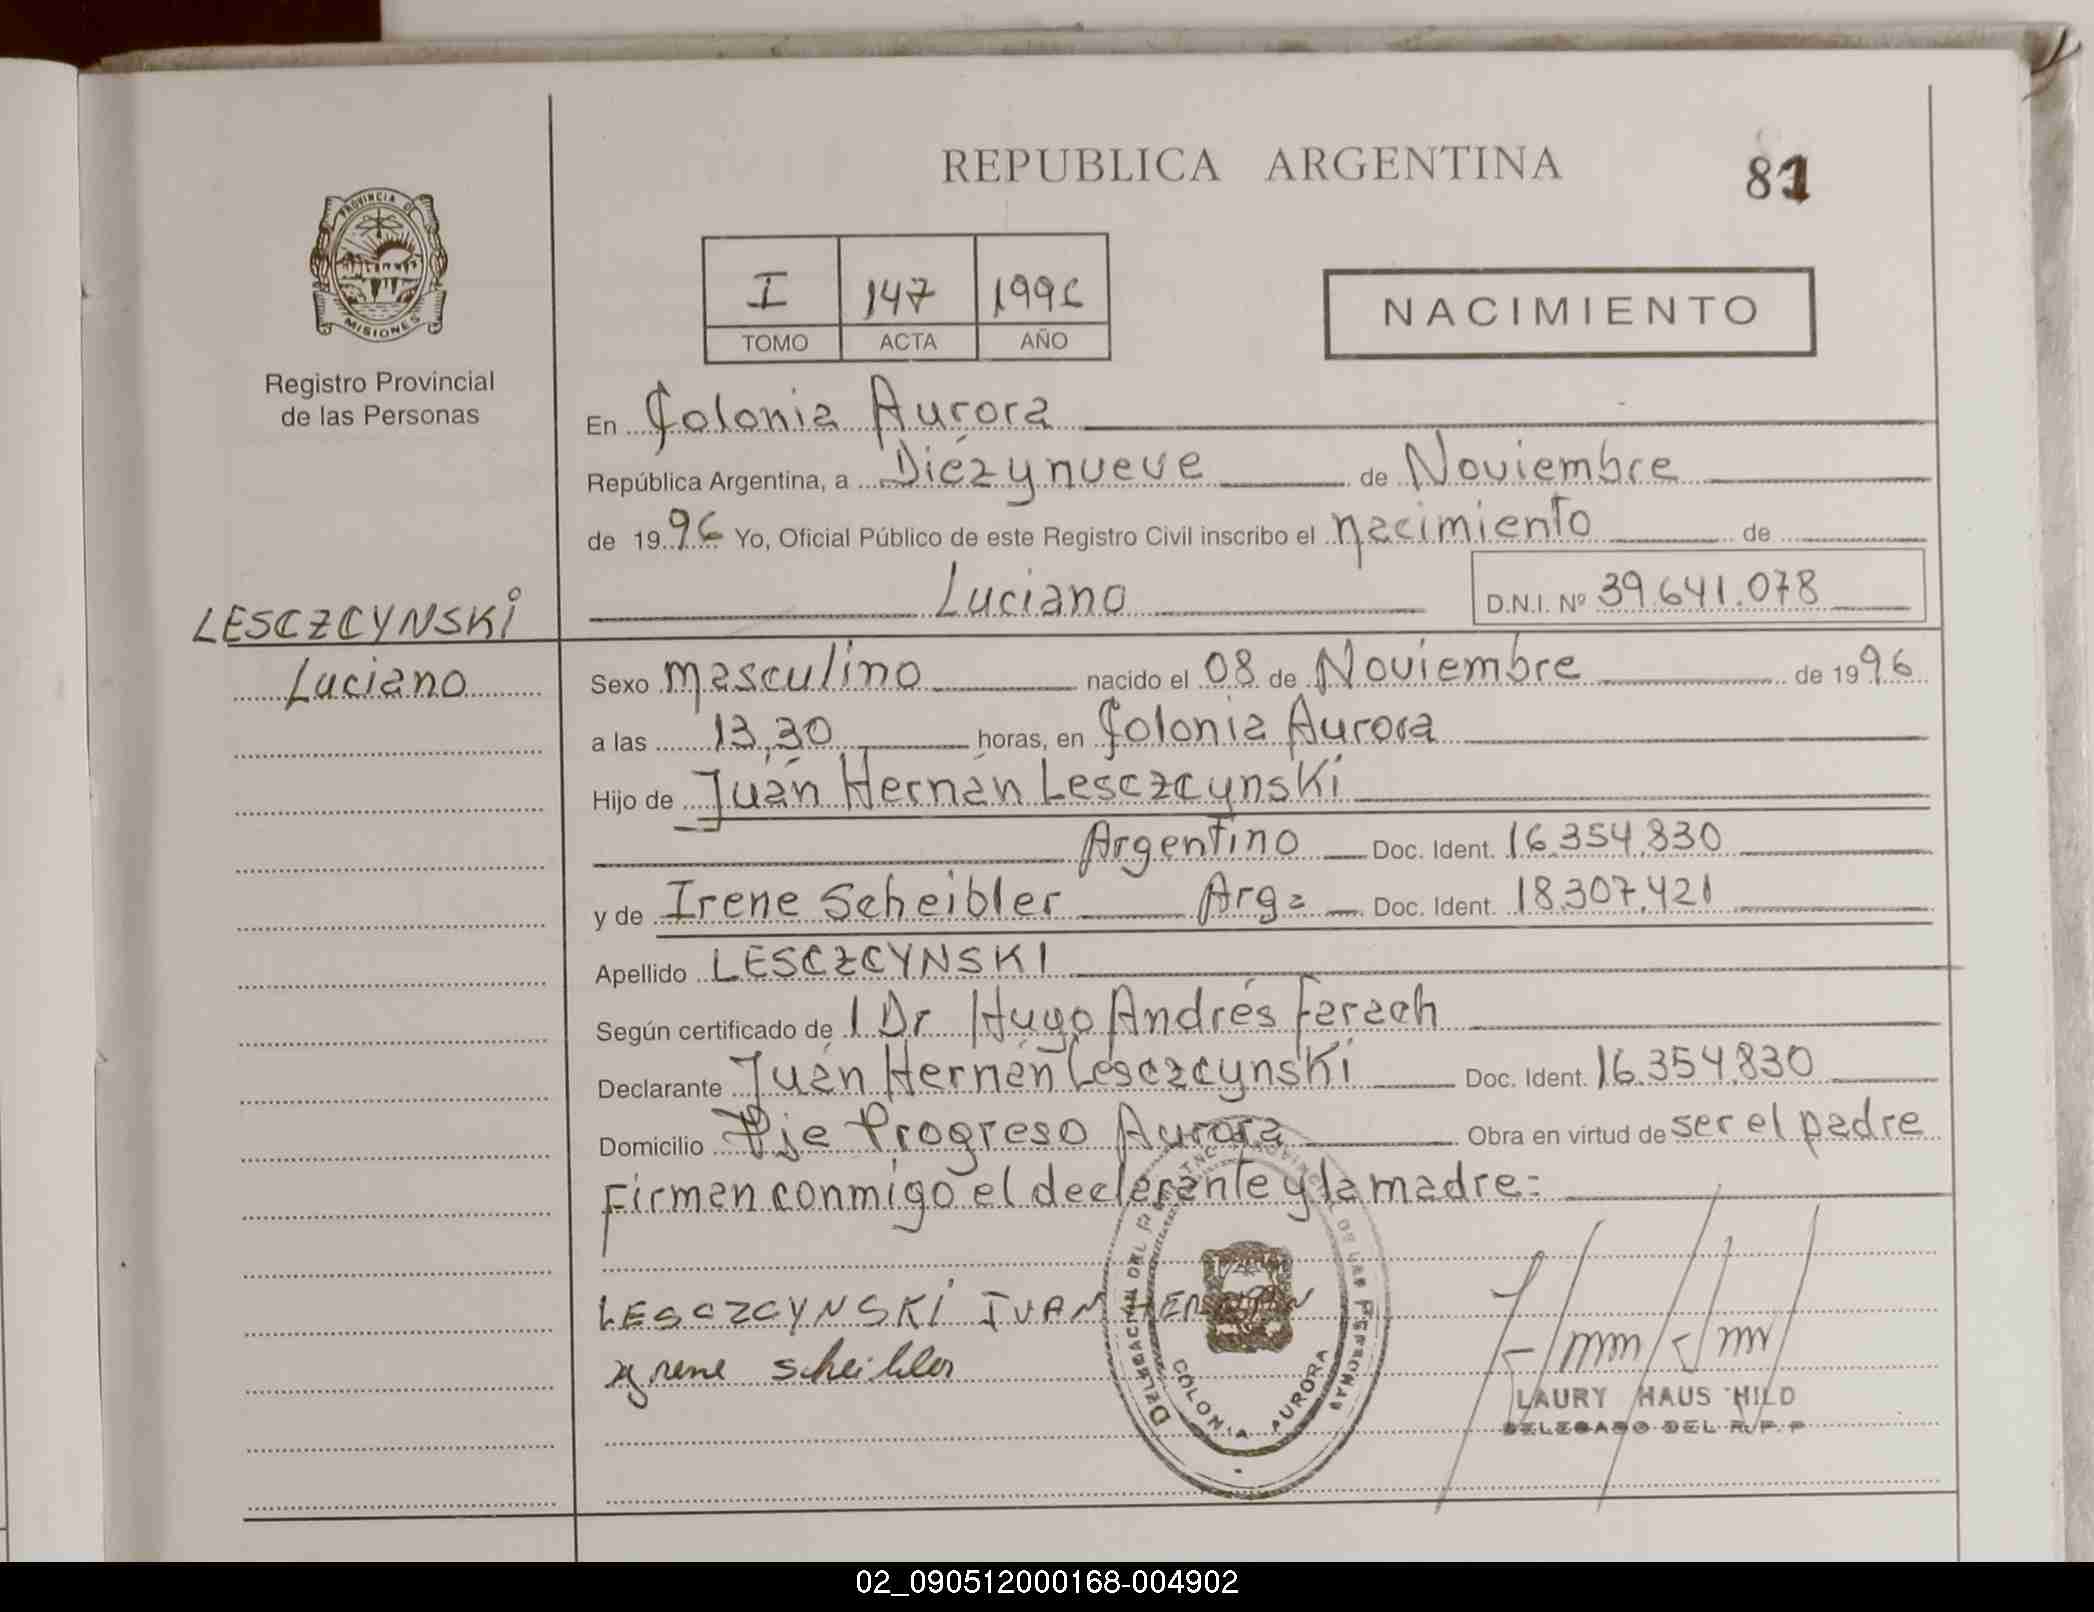 REPUBLICA ARGENTINA
81
PROVINCIA DE
MISIONES
Registro Provincial
de las Personas
I 147 1996
TOMO ACTA AÑO
NACIMIENTO
En Colonia Aurora
República Argentina, a Diézynueve de Noviembre
de 1996 Yo, Oficial Público de este Registro Civil inscribo el nacimiento de
Luciano D.N.I. Nº 39.641.078
LESCZCYNSKI
Luciano
Sexo masculino nacido el 08 de Noviembre de 1996
a las 13,30 horas, en Colonia Aurora
Hijo de Juán Hernán Lesczcynski
Argentino Doc. Ident. 16.354.830
y de Irene Scheibler Arg= Doc. Ident. 18.307.421
Apellido LESCZCYNSKI
Según certificado de l Dr Hugo Andrés Farach
Declarante Juán Hernán Lesczcynski Doc. Ident. 16.354.830
Domicilio Pje Progreso Aurora Obra en virtud de ser el padre
Firman conmigo el declarante y la madre=
LESCZCYNSKI JUAN HERNAN
Irene Scheibler
COLONIA AURORA
LAURY HAUS HILD
DELEGADO DEL R.P.P
02_090512000168-004902